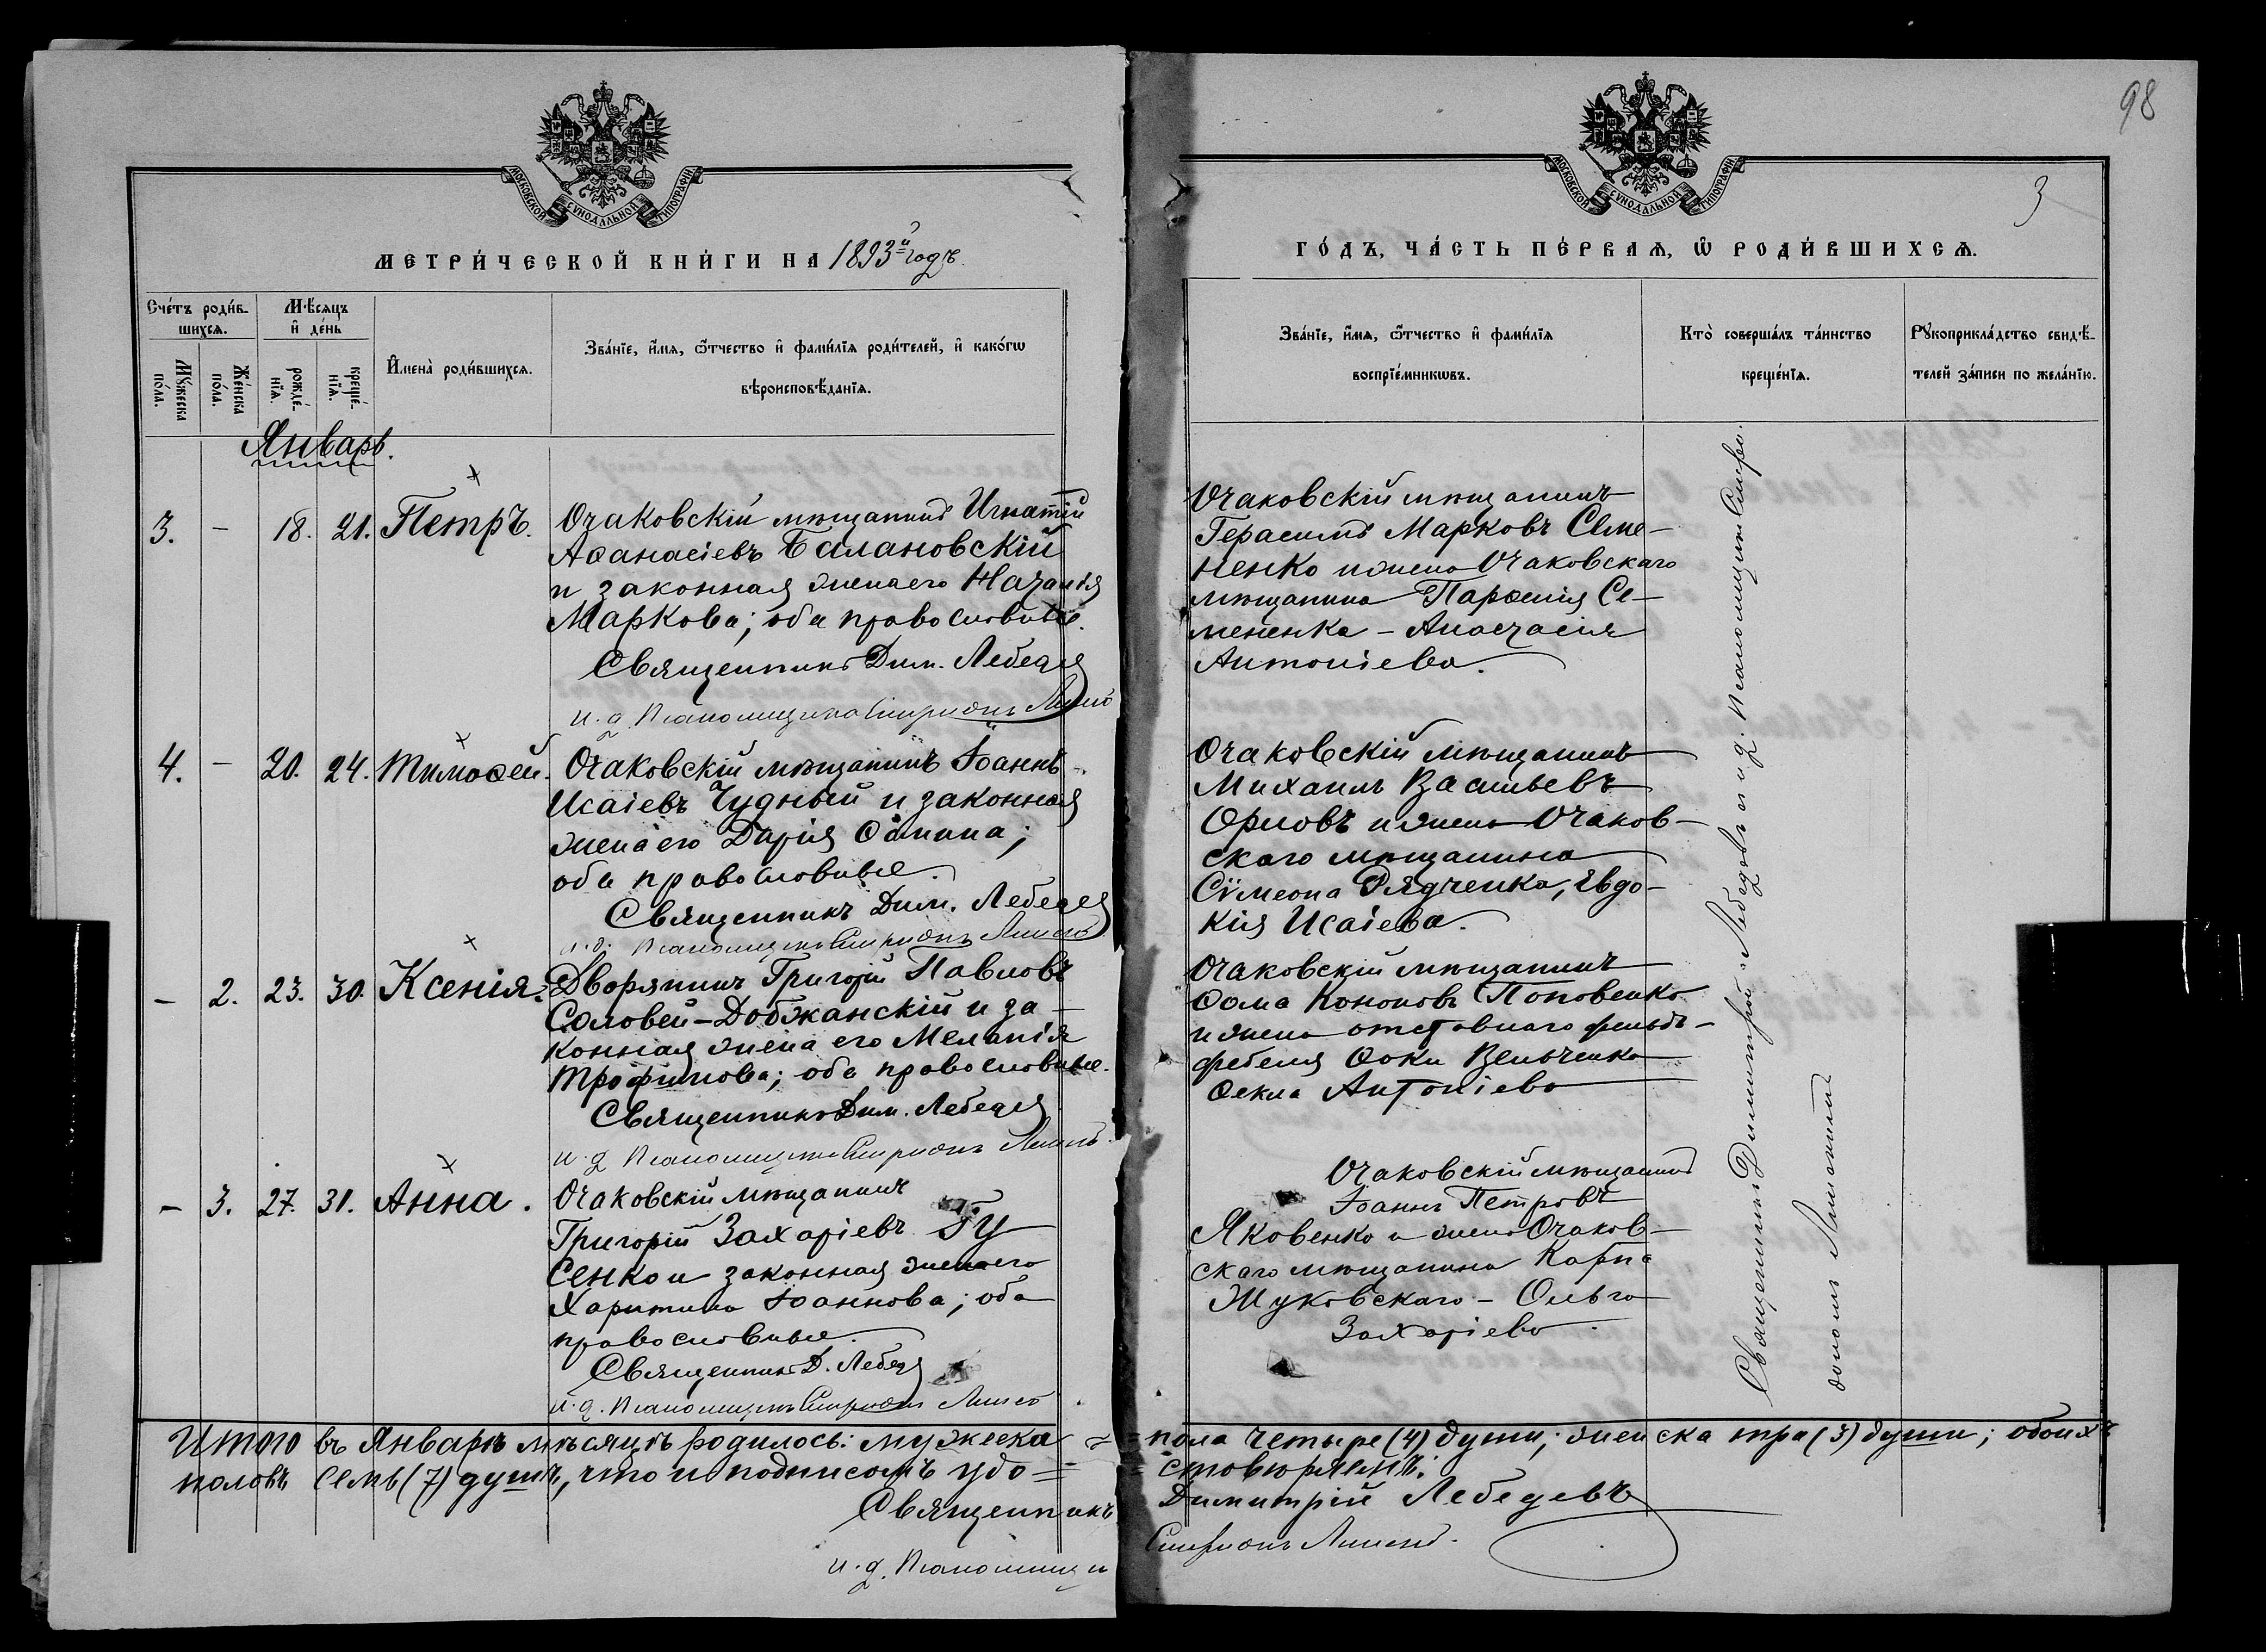 98
3
МОСКОВСКОЙ СѴНОДАЛЬНОЙ ТИПОГРАФІИ
МОСКОВСКОЙ СѴНОДАЛЬНОЙ ТИПОГРАФІИ
МЕТРИ́ЧЕСКОЙ КНИ́ГИ НА 1893й годъ
ГО́ДЪ, ЧА́СТЬ ПЕ́РВАѦ, Ѿ РОДИ́ВШИХСѦ.
Сче́тъ роди́в-
шихсѧ.
Мꙋ́жеска по́ла.
Же́нска по́ла.
Мѣ́сяцъ
и҆ де́нь
рожде́-
нїѧ.
креще́-
нїѧ.
И҆мена̀ роди́вшихсѧ.
Зва́нїе, и҆́мѧ, ѻ҆́тчество и҆ фами́лїѧ роди́телей, и҆ како́гѡ
вѣроисповѣ́данїѧ.
Зва́нїе, и҆́мѧ, ѻ҆́тчество и҆ фами́лїѧ
воспрїе́мникѡвъ.
Кто̀ соверша́лъ та́инство
креще́нїѧ.
Рꙋкоприкла́дство свидѣ́-
телей за́писи по жела́нїю.
Январь.
3. – 18. 21. Петръ.
Очаковскій мѣщанинъ Игнатій
Аѳанасіевъ Балановскій
и законная жена его Наталія
Маркова; оба православные.
Священникъ Дим. Лебедев
и. д. Псаломщика Спиридонъ
Очаковскій мѣщанинъ
Герасимъ Марковъ Семе-
ненко и жена Очаковскаго
мѣщанина Парѳенія Се-
мененка – Анастасія
Антоніева.
4. – 20. 24. Тимоѳей.
Очаковскій мѣщанинъ Іоаннъ
Исаіевъ Чудный и законная
жена его Дарія Осипина;
оба православные.
Священникъ Дим. Лебедев
и. д. Псаломщика Спиридонъ
Очаковскій мѣщанинъ
Михаилъ Васильевъ
Орловъ и жена Очаков-
скаго мѣщанина
Сѵмеона Рядченка, Евдо-
кія Исаіева.
– 2. 23. 30. Ксенія.
Дворянинъ Григорій Павловъ
Соловей-Добжанскій и за-
конная жена его Меланія
Трофимова; оба православные.
Священникъ Дим. Лебедев
и. д. Псаломщика Спиридонъ
Очаковскій мѣщанинъ
Ѳома Кононовъ Поповенко
и жена отставнаго фельд-
фебеля Ѳоки Вельченка
Ѳекла Антоніева
– 3. 27. 31. Анна.
Очаковскій мѣщанинъ
Григорій Захаріевъ Гу
сенко и законная жена его
Харитина Іоаннова; оба
православные.
Священникъ Д. Лебедев
и. д. Псаломщика Спиридонъ
Очаковскій мѣщанинъ
Іоаннъ Петровъ
Яковенко и жена Очаков-
скаго мѣщанина Карпа
Жуковскаго – Ольга
Захаріева.
Священникъ Димитрій Лебедевъ и и. д. псаломщика Спири-
дономъ
Итого въ Январѣ мѣсяцѣ родилось: мужеска = = пола четыре (4) души; женска три (3) души; обоихъ
половъ семь (7) душъ, что и подписомъ удо = = стовѣряемъ:
Священникъ Димитрій Лебедевъ
и. д. Псаломщи Спиридонъ